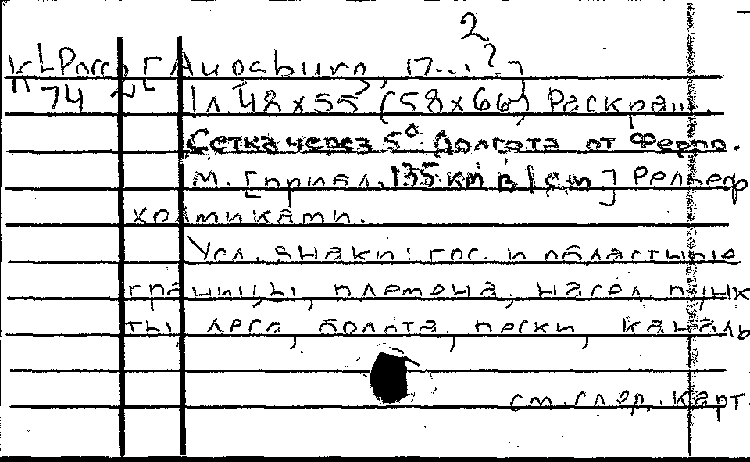 2
К LРосс [Augsburg, 17...?]
74 2 1 л. 48 x 55 (58 x 66) Раскраш.
Сетка через 5° Долгота от Ферро.
М. [прибл. 135 km в 1 cm] Рельеф
холмиками.
Усл. знаки: гос. и областные
границы, племена, насел. пунк
ты, леса, болота, пески, каналы
см. след. карт.